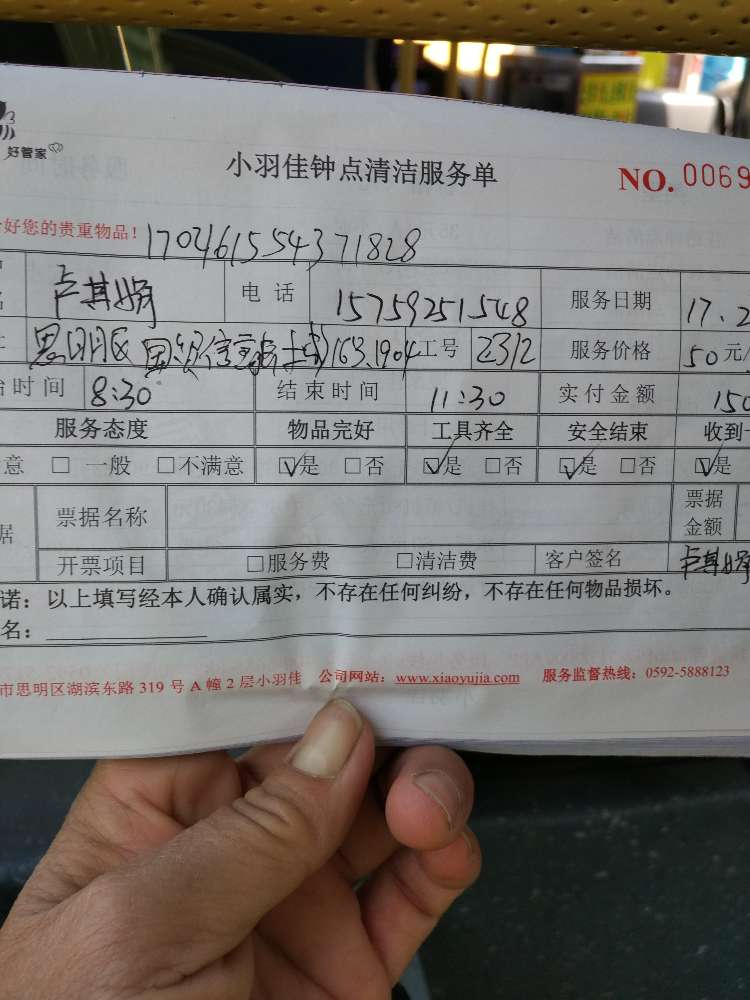 好管家
小羽佳钟点清洁服务单 NO. 0069
好您的贵重物品! 170461554371828
电话 15759251548 服务日期 17.2
思明区 163.1904 工号 2312 服务价格 50元/
时间 8:30 结束时间 11:30 实付金额 150
服务态度 物品完好 工具齐全 安全结束 收到
意 □ 一般 □不满意 ☑是 □否 ☑是 □否 ☑是 □否 ☑是
据 票据名称 票据金额
开票项目 □服务费 □清洁费 客户签名
诺：以上填写经本人确认属实，不存在任何纠纷，不存在任何物品损坏。
名：
市思明区湖滨东路 319 号 A 幢 2 层小羽佳 公司网站：www.xiaoyujia.com 服务监督热线：0592-5888123